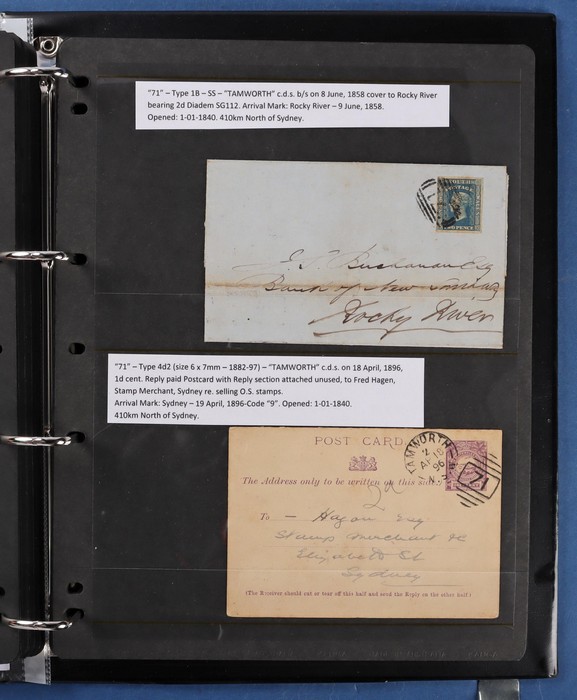 "71" – Type 1B – SS – "TAMWORTH" c.d.s. b/s on 8 June, 1858 cover to Rocky River
bearing 2d Diadem SG112. Arrival Mark: Rocky River – 9 June, 1858.
Opened: 1-01-1840. 410km North of Sydney.
POSTAGE
Buchanan Esq
Bank of New
Rocky River
"71" – Type 4d2 (size 6 x 7mm – 1882-97) – "TAMWORTH" c.d.s. on 18 April, 1896,
1d cent. Reply paid Postcard with Reply section attached unused, to Fred Hagen,
Stamp Merchant, Sydney re. selling O.S. stamps.
Arrival Mark: Sydney – 19 April, 1896-Code "9". Opened: 1-01-1840.
410km North of Sydney.
POST CARD
TAMWORTH
AP 18
96
N.S
71
The Address only to be written on this side.
To – Hagen Esq
Stamp Merchant &c
Elizabeth St
Sydney
(The Receiver should cut or tear off this half and send the Reply on the other half.)